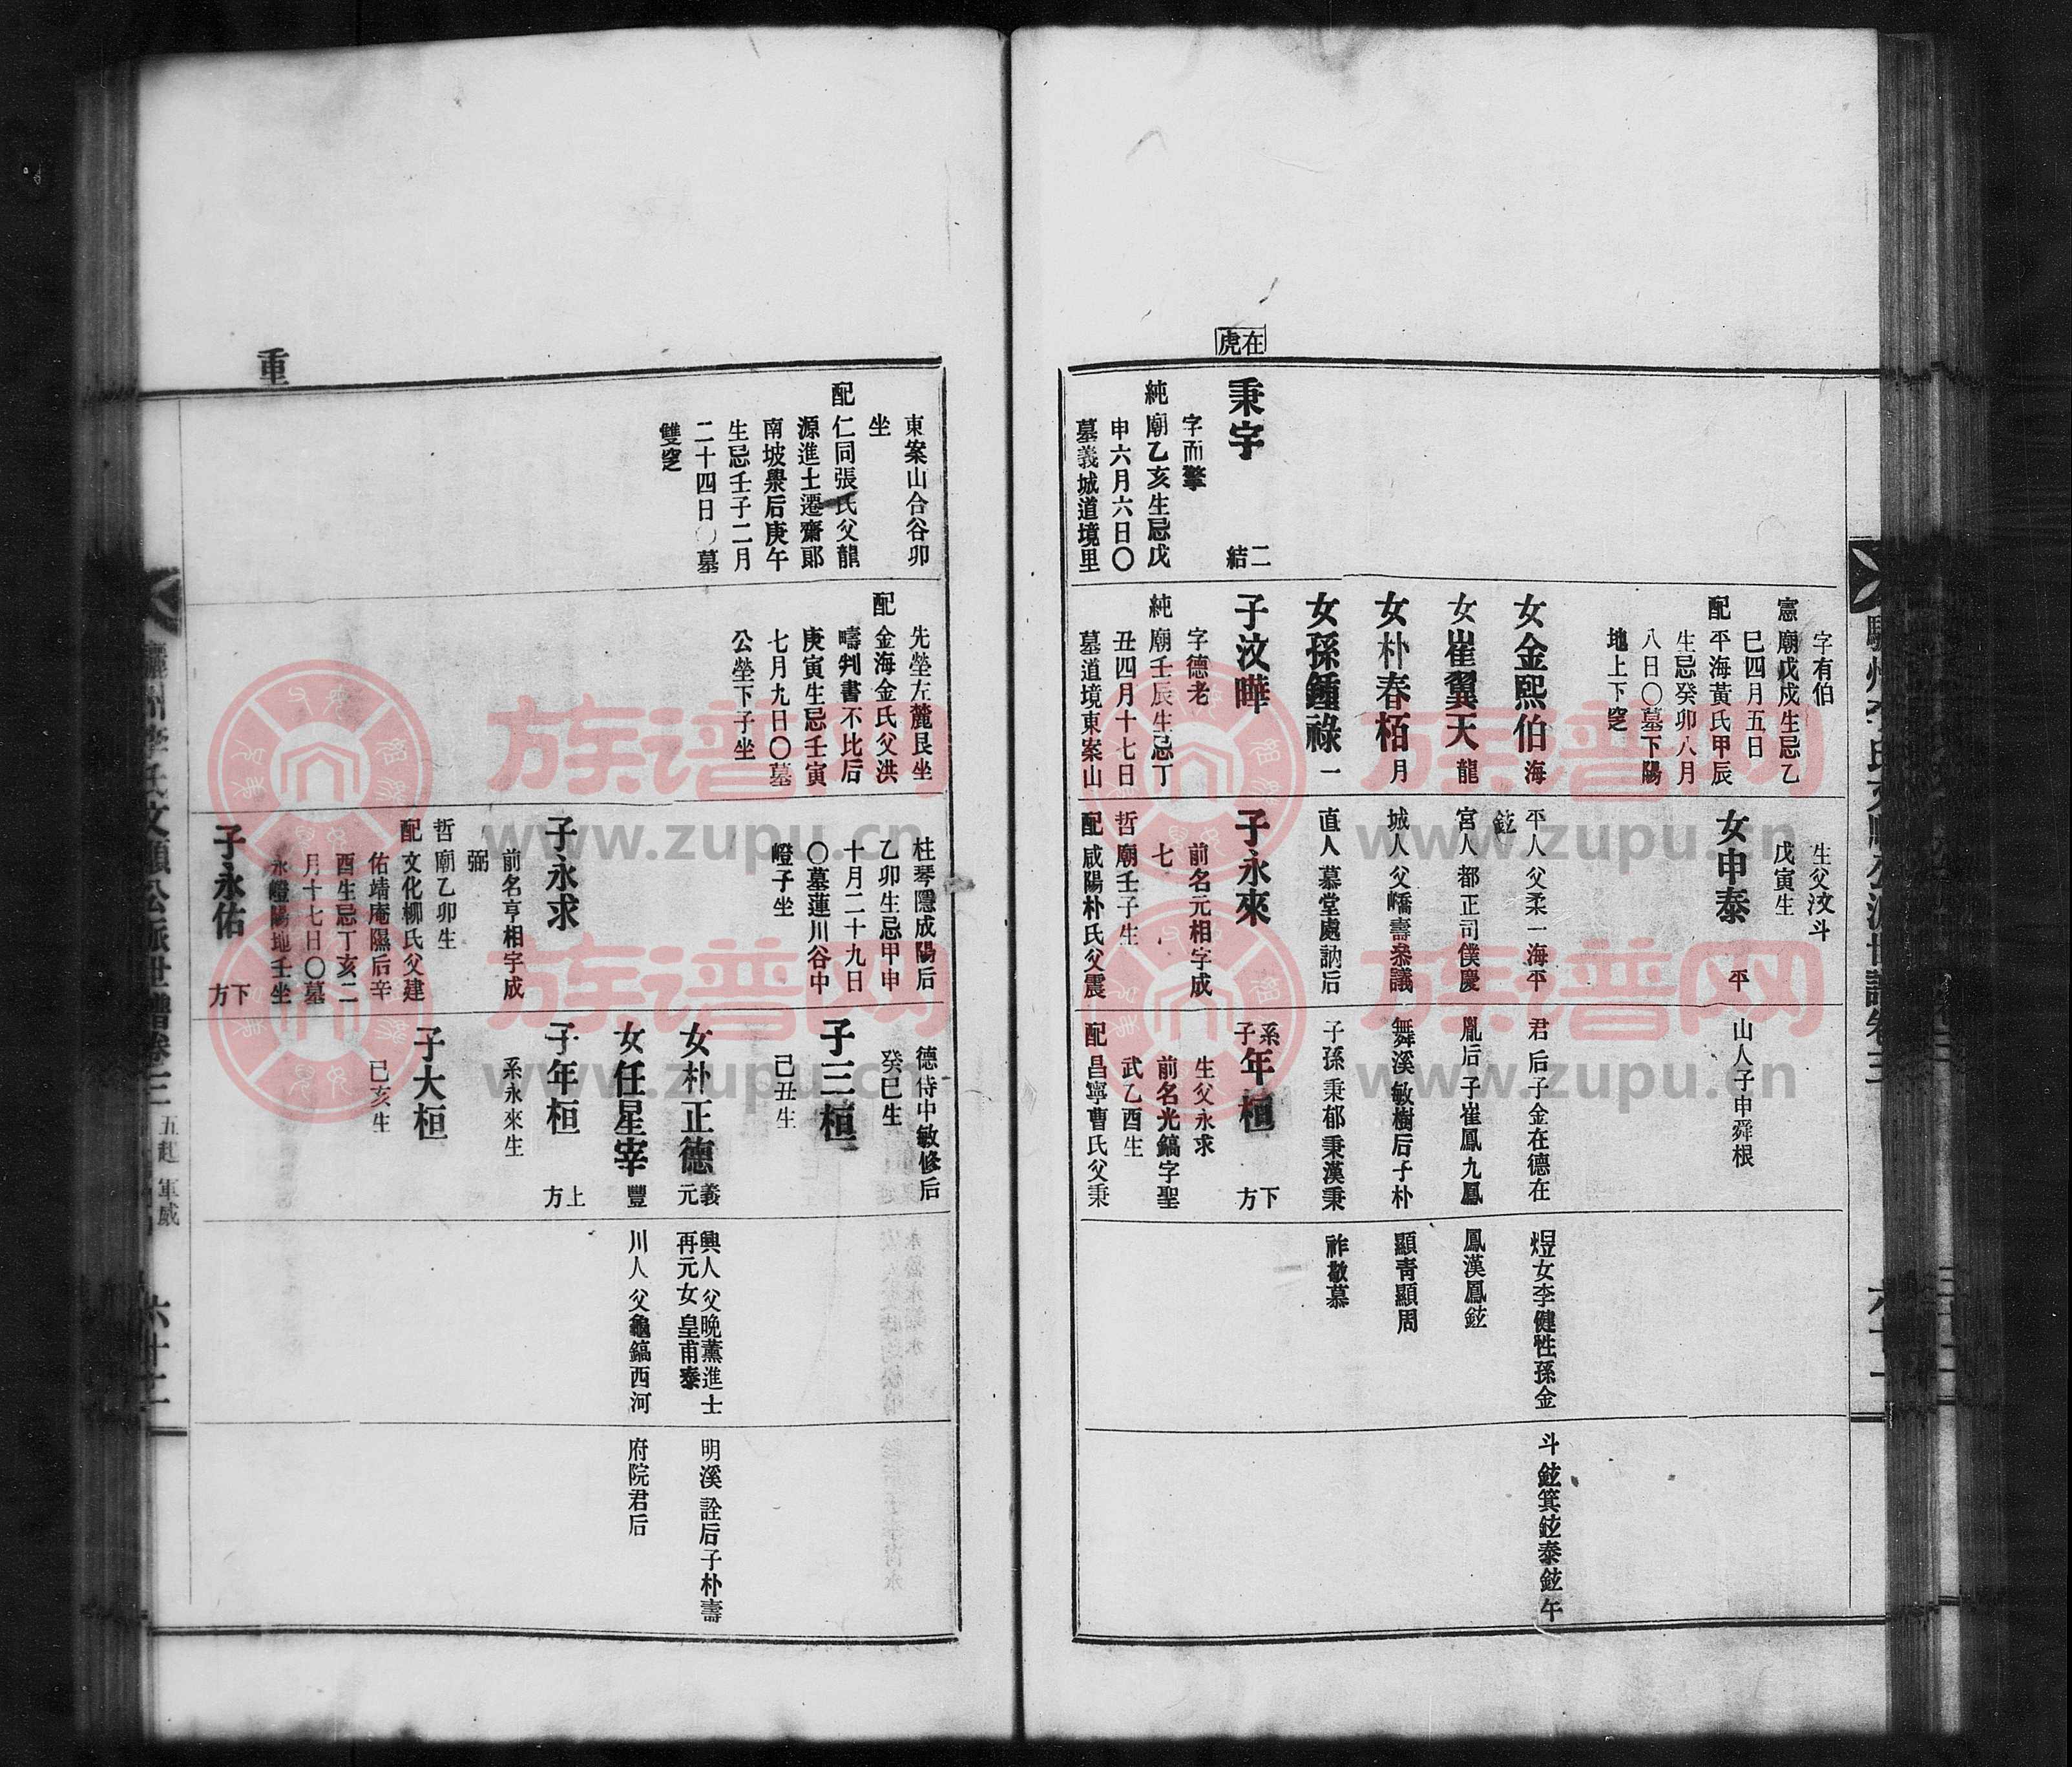 在
虎
秉宇
二
結
字而擎
純廟乙亥生忌戊
申六月六日〇
墓義城道境里
字有伯
憲廟戊戌生忌乙
巳四月五日
配平海黃氏甲辰
生忌癸卯八月
八日〇墓下陽
地上下窆
女金熙伯海
女崔翼天龍
女朴春栢月
女孫鍾祿一
子汶曄
字德老
純廟壬辰生忌丁
丑四月十七日
墓道境東案山
生父汶斗
戊寅生
女申泰平
平人父柔一海平
鉉
宮人都正司僕慶
城人父嶠壽叅議
直人慕堂處訥后
子永來
前名元相字成
七
哲廟壬子生
配咸陽朴氏父震
山人子申舜根
君后子金在德在
胤后子崔鳳九鳳
舞溪敏樹后子朴
子孫秉郁秉漢秉
系
子年桓
下
方
生父永求
前名光鎬字聖
武乙酉生
配昌寧曹氏父秉
煜女李健性孫金
鳳漢鳳鉉
顯靑顯周
祚敬慕
斗鉉箕鉉泰鉉午
重
東案山合谷卯
坐
配仁同張氏父龍
源進士遷齋郞
南坡㵢后庚午
生忌壬子二月
二十四日〇墓
雙窆
先塋左麓艮坐
配金海金氏父洪
疇判書不比后
庚寅生忌壬寅
七月九日〇墓
公塋下子坐
柱琴隱成陽后
乙卯生忌甲申
十月二十九日
〇墓蓮川谷中
嶝子坐
子永求
前名亨相字成
弼
哲廟乙卯生
配文化柳氏父建
佑靖庵隰后辛
酉生忌丁亥二
月十七日〇墓
永嶝陽地壬坐
子永佑
下
方
德侍中敏修后
癸巳生
子三桓
己丑生
女朴正德義
元
女任星宰豐
子年桓
上
方
系永來生
子大桓
己亥生
興人父晩薰進士
再元女皇甫泰
川人父龜鎬西河
明溪詮后子朴壽
府院君后
驪州李氏文順公派世譜卷三
五起軍威
六十二